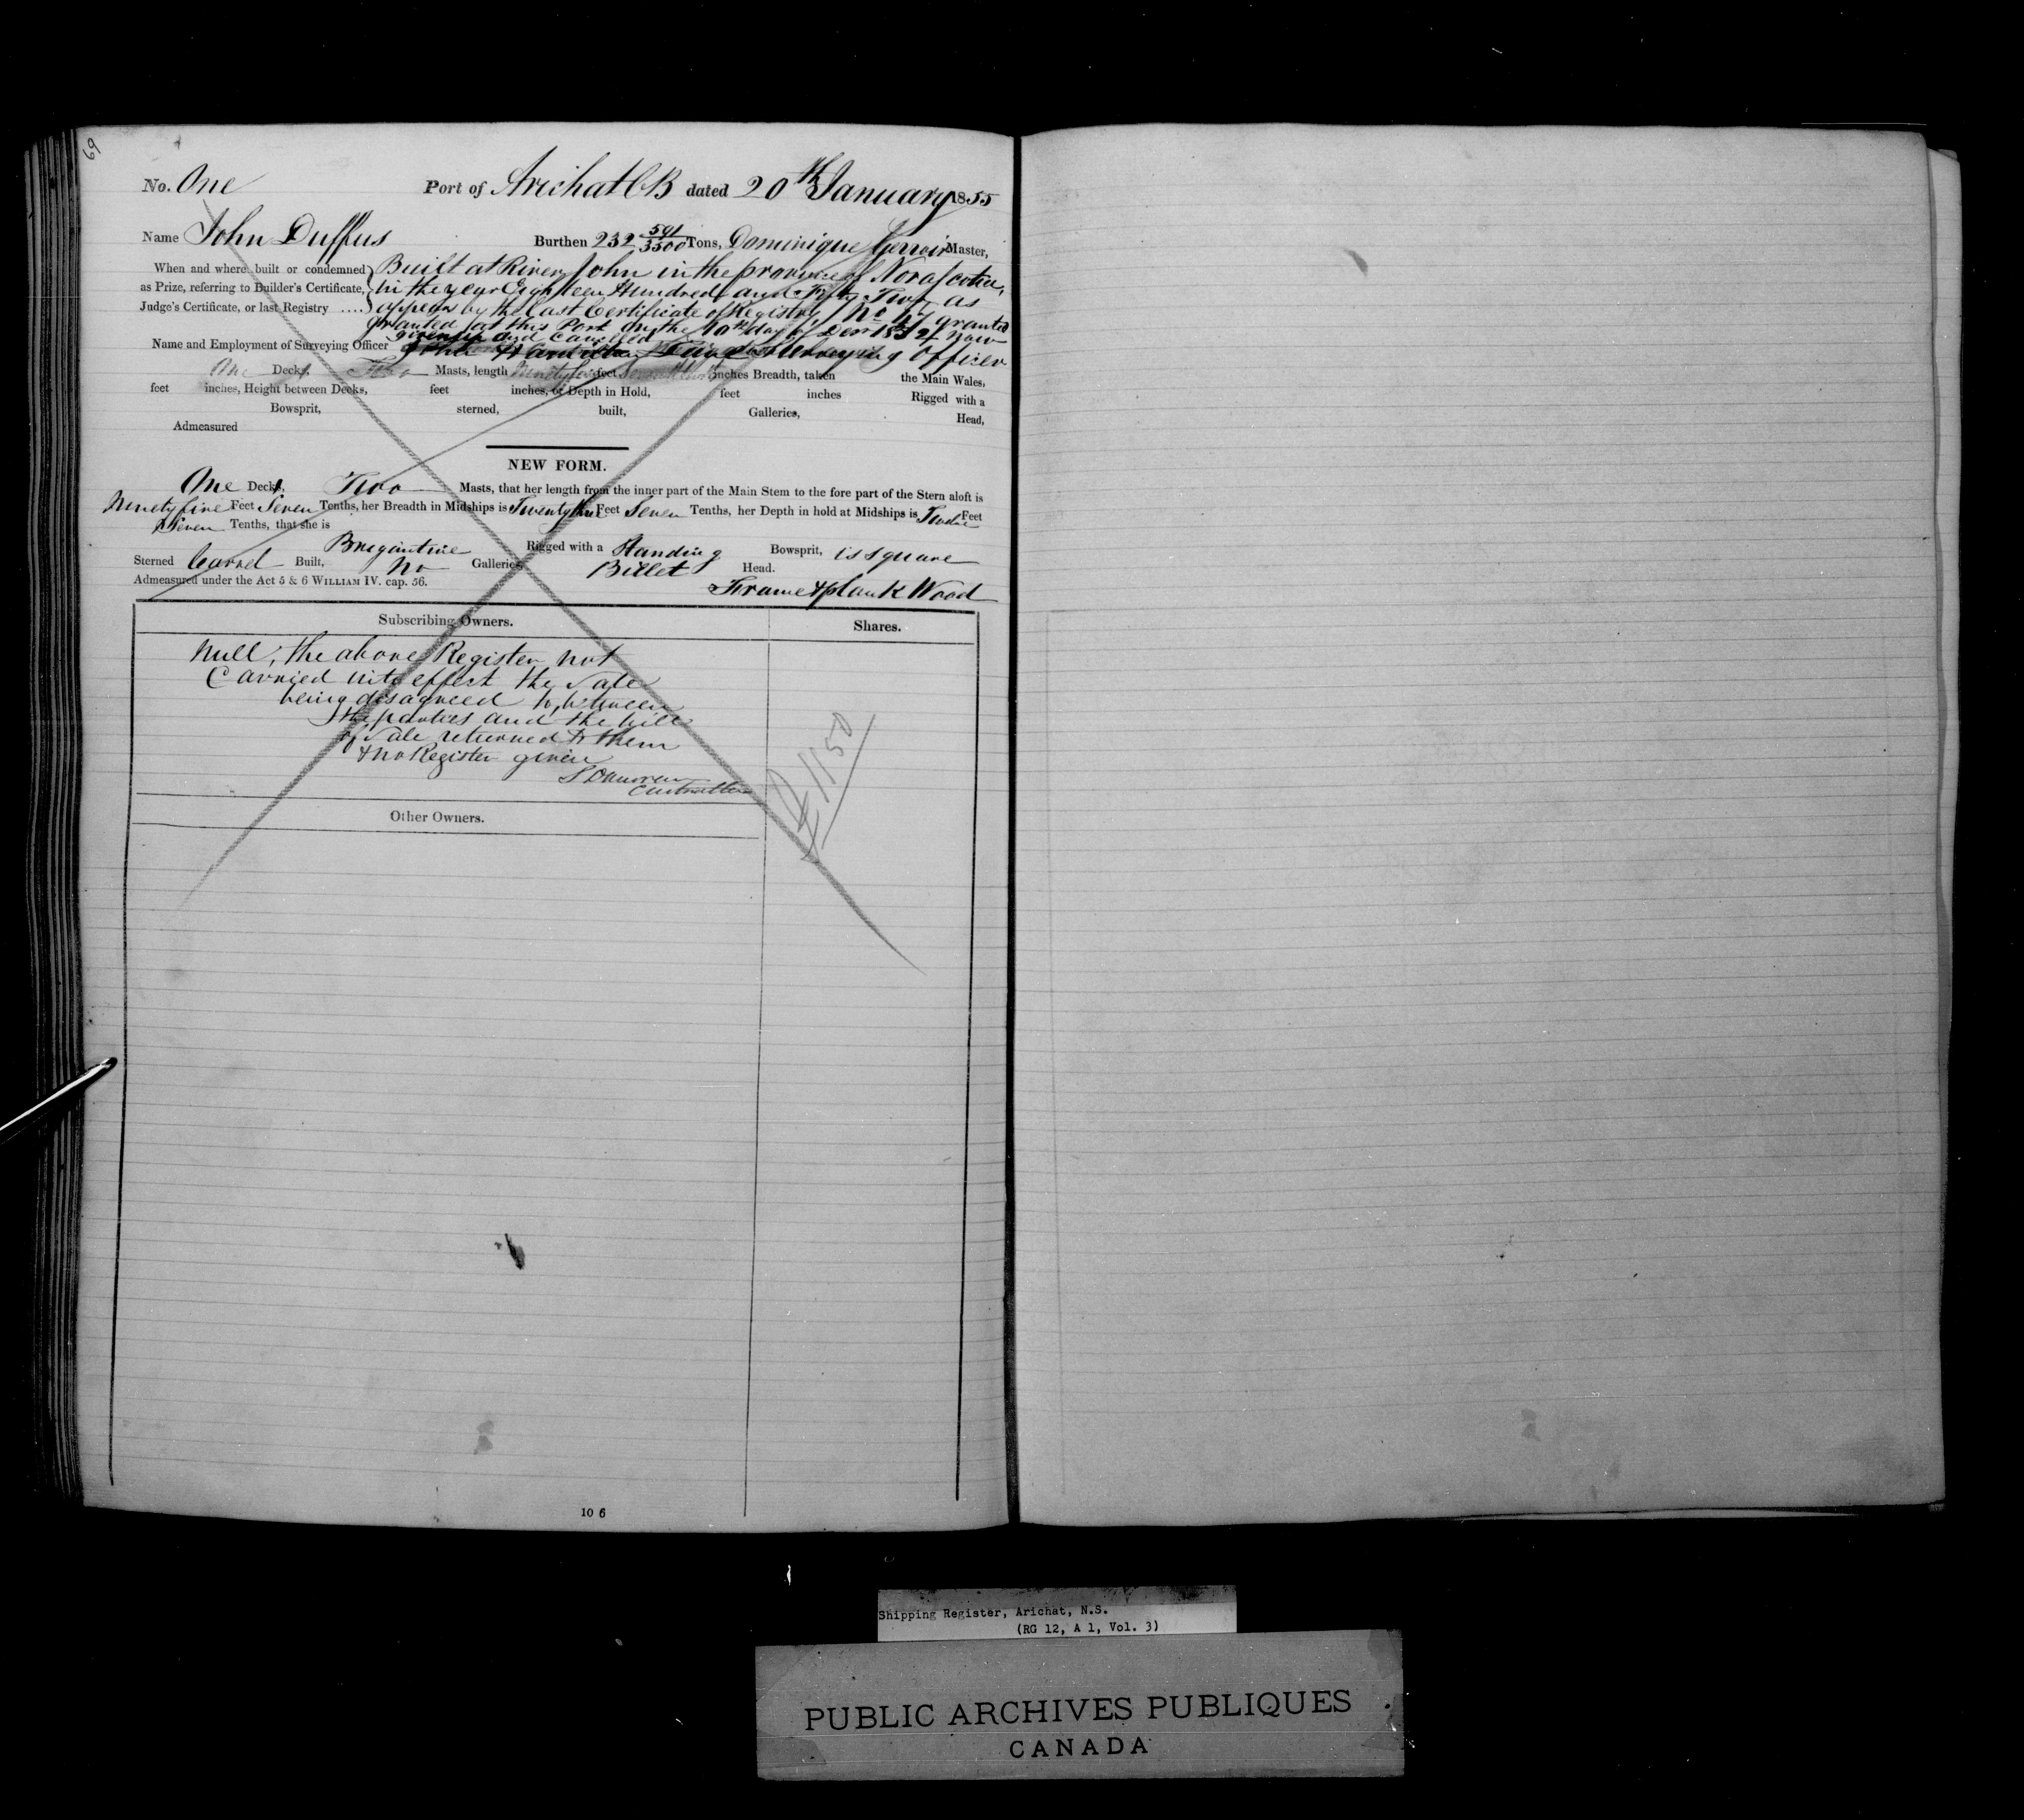 69
No. One Port of Arichat CB dated 20th January 1855
Name John Duffus Burthen 232 591/3500 Tons, Dominique Gerroir Master,
When and where built or condemned Built at River John in the province of Nova Scotia,
as Prize, referring to Builder's Certificate, in the year Eighteen Hundred and Fifty Two as
Judge's Certificate, or last Registry .... appears by the last Certificate of Registry No 47 granted
granted at this Port on the 10th day of Decr 1852 now
given up and Cancelled
Name and Employment of Surveying Officer Surveying Officer
One Decks, Two Masts, length feet inches Breadth, taken the Main Wales,
feet inches, Height between Decks, feet inches, or Depth in Hold, feet inches Rigged with a
Bowsprit, sterned, built, Galleries, Head,
Admeasured
NEW FORM.
One Decks, Two Masts, that her length from the inner part of the Main Stem to the fore part of the Stern aloft is
Ninety five Feet Seven Tenths, her Breadth in Midships is Twenty three Feet Seven Tenths, her Depth in hold at Midships is Twelve Feet
Seven Tenths, that she is Brigantine Rigged with a Standing Bowsprit, is square
Sterned Carvel Built, No Galleries, Billet Head.
Admeasured under the Act 5 & 6 WILLIAM IV. cap. 56. Frame & plank Wood
Subscribing Owners. Shares.
Null, the above Register not
Carried into effect the Sale
being disagreed to between
the parties and the bill
of Sale returned to them
& no Register given
£1150
Other Owners.
10 6
Shipping Register, Arichat, N.S.
(RG 12, A 1, Vol. 3)
PUBLIC ARCHIVES PUBLIQUES
CANADA